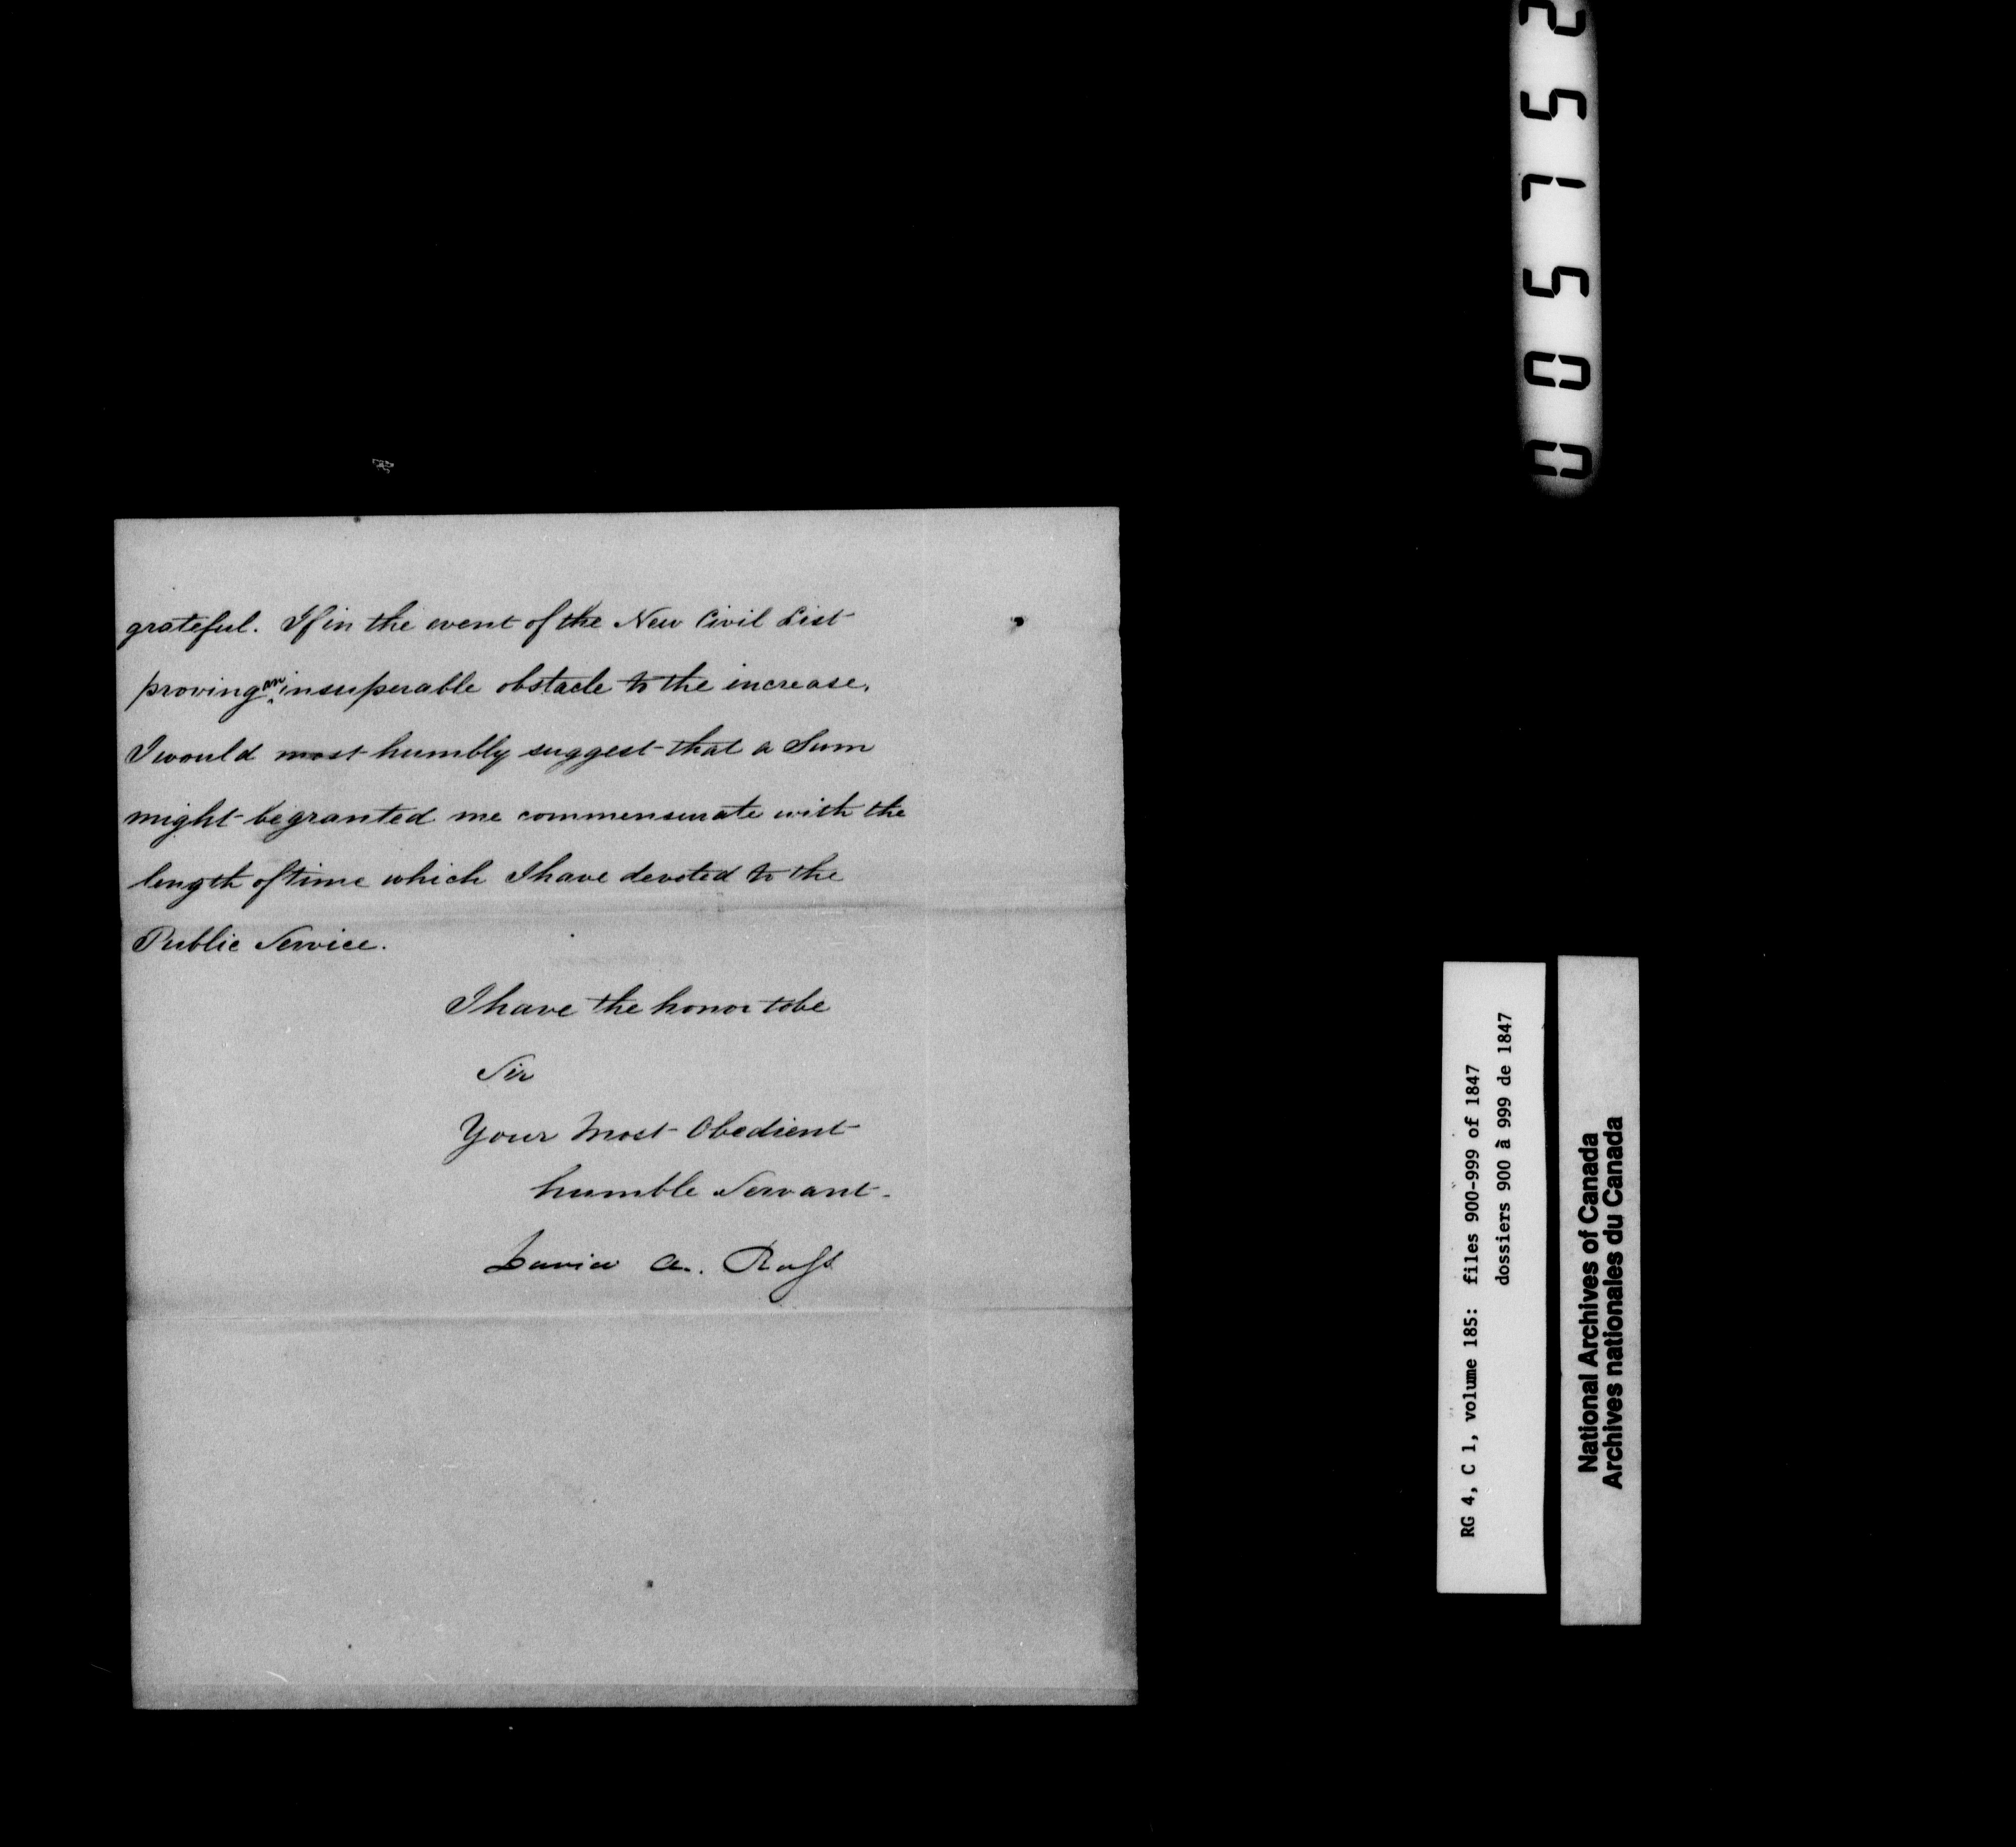 grateful. If in the event of the New Civil List
proving an insuperable obstacle to the increase,
I would most humbly suggest that a Sum
might be granted me commensurate with the
length of time which I have devoted to the
Public Service.
I have the honor to be
Sir
Your Most Obedient
humble Servant.
David A. Ross
RG 4, C 1, volume 185: files 900-999 of 1847
dossiers 900 à 999 de 1847
National Archives of Canada
Archives nationales du Canada
005152